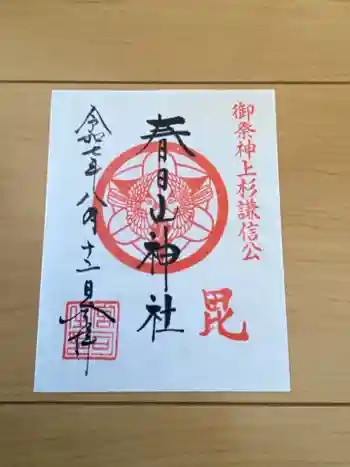 御祭神上杉謙信公
毘
春日山神社
令和七年八月十二日参拝